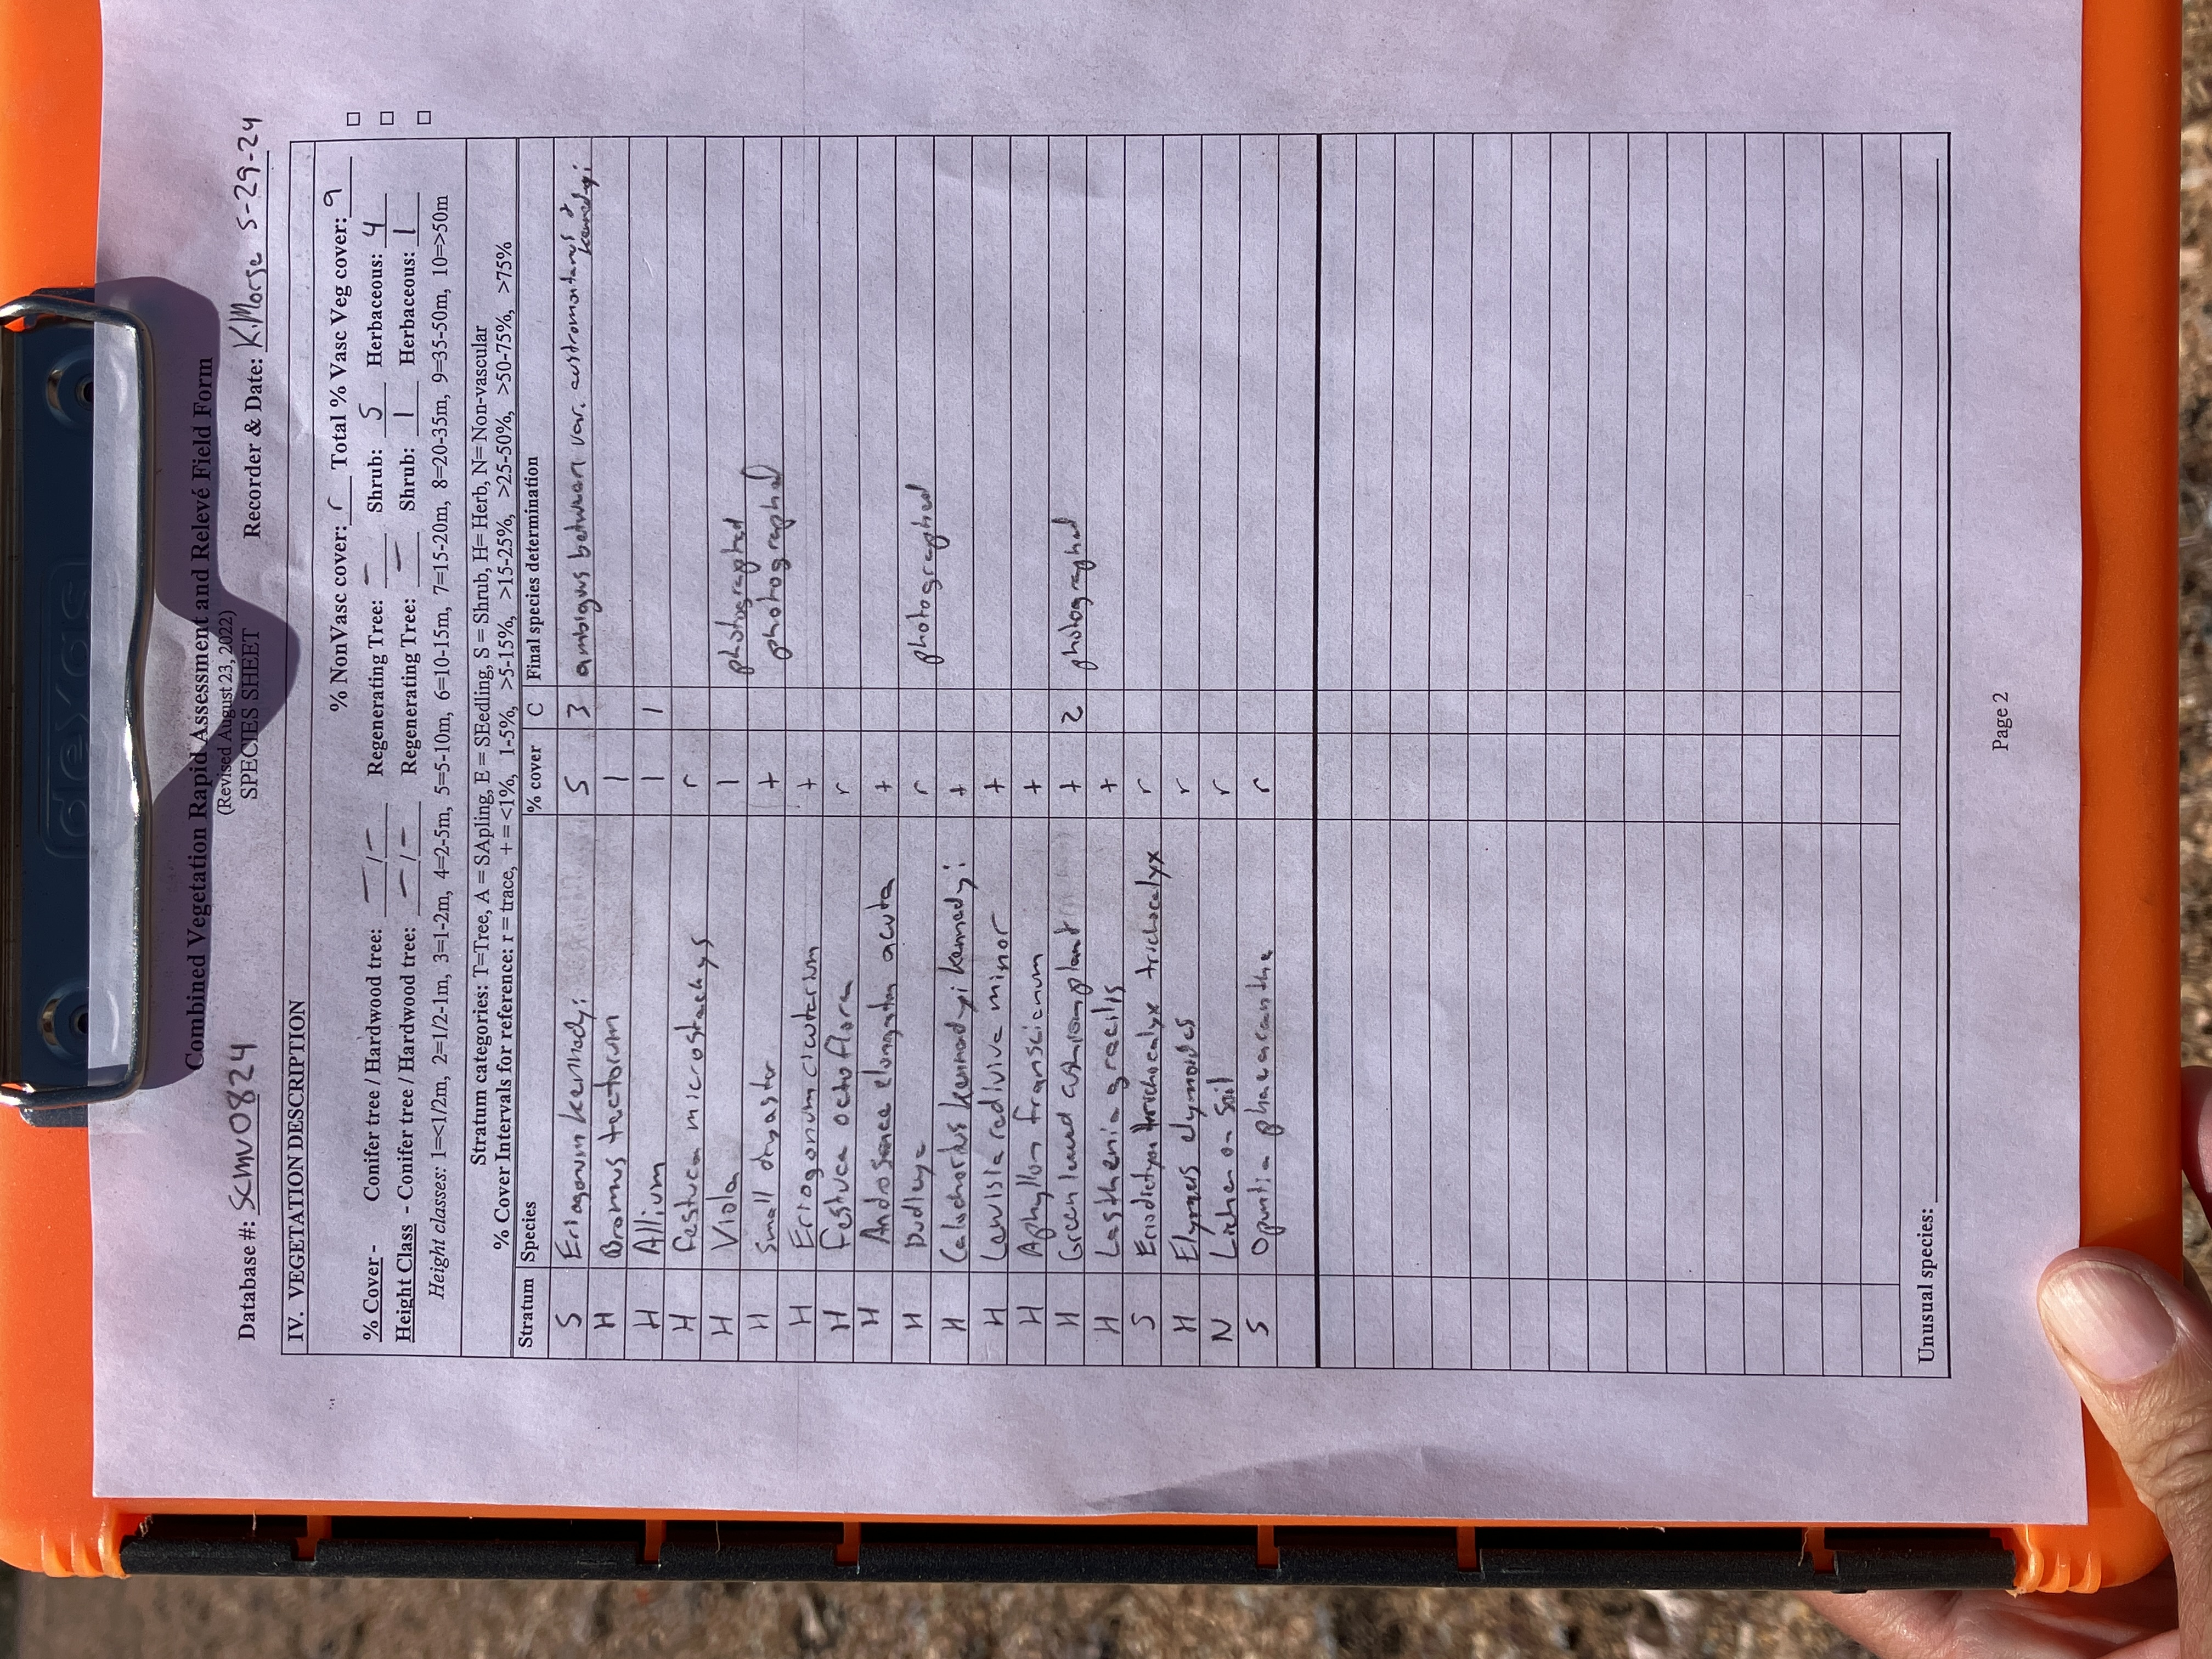 dexas
Combined Vegetation Rapid Assessment and Relevé Field Form
(Revised August 23, 2022)
SPECIES SHEET
Database #: SCMV0824 Recorder & Date: K.Morse 5-29-24
IV. VEGETATION DESCRIPTION
% NonVasc cover: r Total % Vasc Veg cover: 9
% Cover - Conifer tree / Hardwood tree: - / - Regenerating Tree: - Shrub: 5 Herbaceous: 4
Height Class - Conifer tree / Hardwood tree: - / - Regenerating Tree: - Shrub: 1 Herbaceous: 1
Height classes: 1=<1/2m, 2=1/2-1m, 3=1-2m, 4=2-5m, 5=5-10m, 6=10-15m, 7=15-20m, 8=20-35m, 9=35-50m, 10=>50m
Stratum categories: T=Tree, A = SApling, E = SEedling, S = Shrub, H= Herb, N= Non-vascular
% Cover Intervals for reference: r = trace, + = <1%, 1-5%, >5-15%, >15-25%, >25-50%, >50-75%, >75%
Stratum Species % cover C Final species determination
S Eriogonum kennedyi 5 3 ambigus between var. austromontanus & kennedyi
H Bromus tectorum 1
H Allium 1 1
H Festuca microstachys r
H Viola 1 photographed
H Small dryastor + photographed
H Eriogonum cicutarium +
H Festuca octoflora r
H Androsace elongata acuta +
H Dudleya r photographed
H Calochortus kennedyi kennedyi +
H Lewisia rediviva minor +
H Aphyllon franciscanum +
H Green leaved cushion plant + 2 photographed
H Lasthenia gracilis +
S Eriodictyon trichocalyx trichocalyx r
H Elymus elymoides r
N Lichen on soil r
S Opuntia phaeacantha r
Unusual species:
Page 2